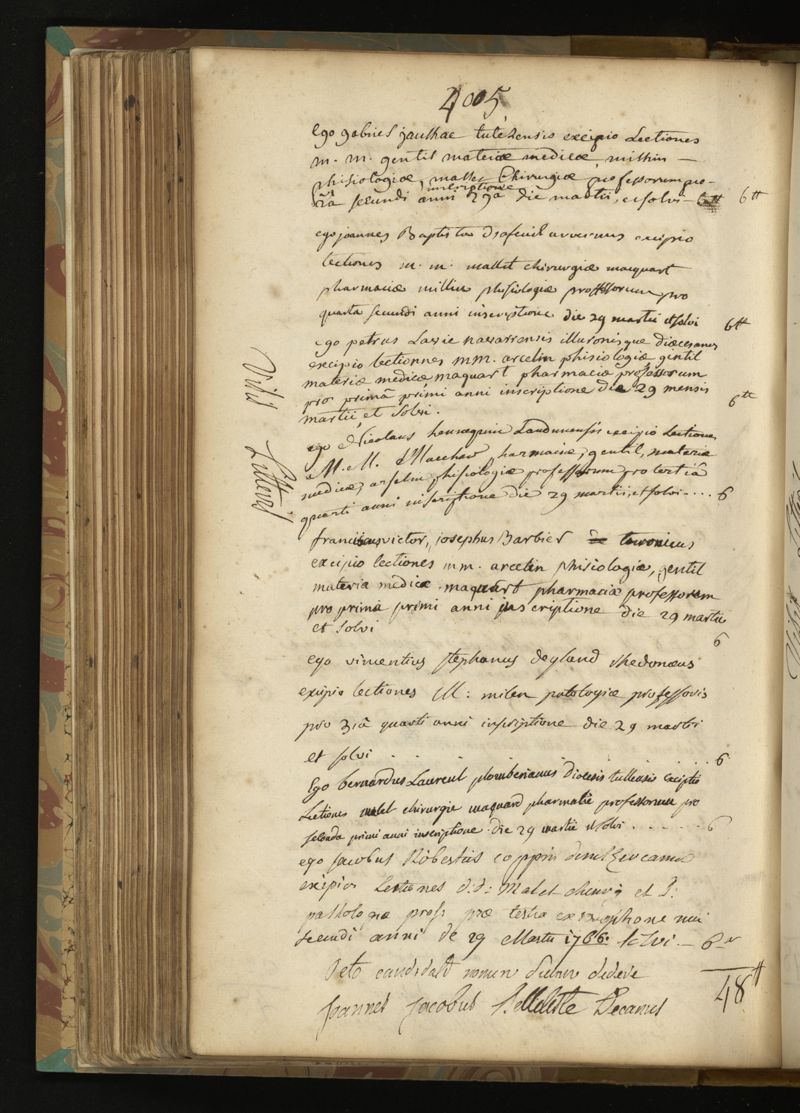 4005
Ego gabriel jaulhac tutelensis excipio Lectiones
m. m. gentil materiæ medicæ, millin —
phisiologiæ, mallet Chirurgiæ professorum pro-
inscriptione
secundi anni die martii, et solvi — 6tt
ego joannes Baptista excipio
lectiones m. m. mallet chirurgiæ macquart
pharmaciæ millin phisiologiæ professorum pro
quarta secundi anni inscriptione die 29 martii et solvi 6tt
ego petrus Lavie navarrensis illuronisque diœcesanus
excipio lectionnes mm. arcelin phisiologiæ gentil
materiæ medicæ maquart pharmaciæ professorum
pro primâ primi anni inscriptione die 29 mensis
martii et solvi. 6tt
Vidi
ego Nicolaus hennequin Laudunensis excipio Lectiones
M. M. Macchar harmaciæ, gentil, materiæ
medicæ, arselin phisiologiæ professorum pro tertiâ
quarti anni inscriptione die 29 martii, et solvi .... 6
franciscus victor, josephus Barbier
excipio lectiones m m. arcelin phisiologiæ, gentil
materia medicæ maquart pharmaciæ professorum
pro prima primi anni inscriptione die 29 martii
et solvi
6
ego vincentius stephanus deyland rhedonæus
excipio lectiones M: milen patologiæ professoris
pro 3iâ quarti anni inscriptione die 29 martii
et solvi . . . . . . . 6
Ego bernardus Laurent plomberianus Diœcesis tullensis excipio
Lectiones malet chirurgie maquard pharmatie professorum pro
secunda primi anni inscriptione die 29 martii et solvi . . . . . . 6
ego Jacobus Robertus coppin
excipio Lectiones d.d: Malet et
pathologiæ profs tertia
secundi anni de 29 Martii 1786. solvi — 6
Octo candidati nomen suum dedere
48tt
Joannes Jacobus Belleteste Decanus